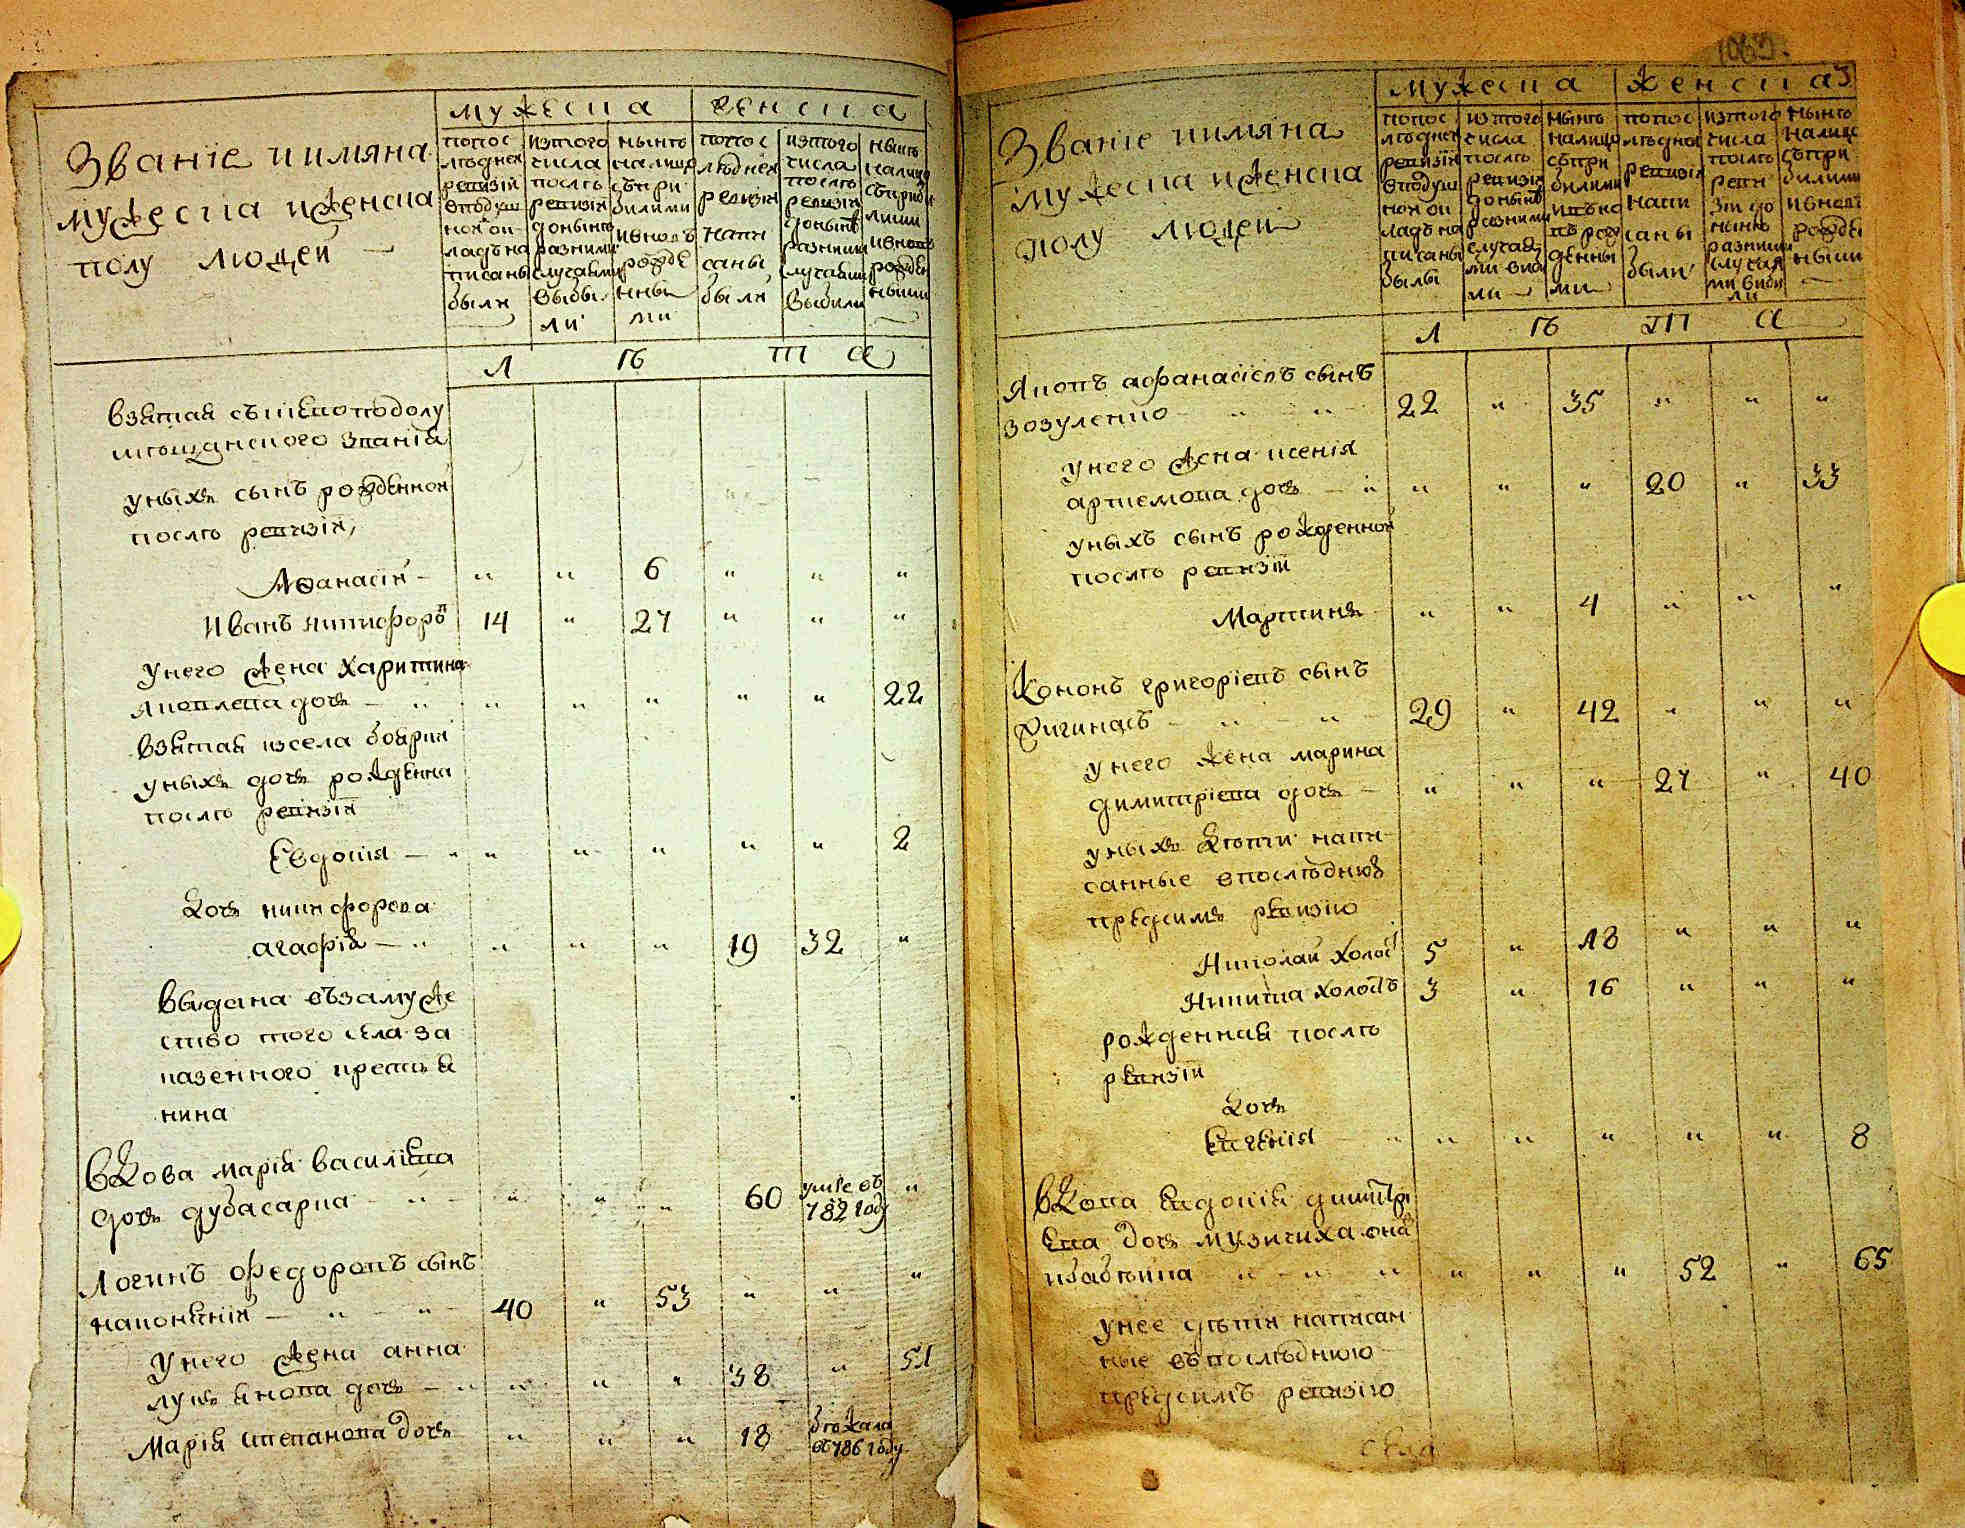 мужеска
женска
Званіе иимяна
мужеска иженска
полу людей
попос
лѣдней
ревизіи
вподуш
ной ок
ладъ на
писаны
были
изтого
числа
послѣ
ревизіи
донынѣ
разними
случаями
выбы
ли
нынѣ
налицо
съпри
былими
ивновъ
рожде
нны
ми
попос
лѣдней
ревизіи
напи
саны
были
изтого
числа
послѣ
ревизіи
донынѣ
разними
случаями
выбили
нынѣ
налицо
ивновъ
рожден
ными
Л ѣ т а
Взятая съ
мѣщанского званія
уныхъ сынъ рожденной
послѣ ревизіи,
Афанасій " " 6 " " "
Иванъ никифоровъ 14 " 27 " " "
унего жена харитина
яковлева дочь " " " " " 22
взятая изсела боярки
уныхъ дочь рожденна
послѣ ревизіи
Евдокія " " " " " 2
Дочь никифорова
агафія " " " 19 32 "
выдана въ замуже
ство того села за
казенного крестья
нина
вдова марія василіева
дочь дубасарка " " " 60 умре въ 782 году "
Логинъ федоровъ сынъ
40 " 53 " " "
унего жена анна
лукьянова дочь " " " 38 " 51
Марія степанова дочь " " " 18 бѣжала въ 786 году
мужеска
женска
Званіе иимяна
мужеска иженска
полу людей
попос
лѣдней
ревизіи
вподуш
ной ок
ладъ на
писаны
былы
изтого
числа
послѣ
ревизіи
донынѣ
разними
случая
ми выбы
ли
нынѣ
налицо
съпри
былими
ивно
въ рож
денны
ми
попос
лѣдней
ревизіи
напи
саны
были
изтого
числа
послѣ
реви
зіи до
нынѣ
разними
случая
ми выбы
ли
нынѣ
налицо
съпри
былими
ивновъ
рожде
ными
Л ѣ т а
Яковъ афанасіевъ сынъ
зозуленко 22 " 35 " " "
унего жена ксенія
артемова дочь " " " 20 " 33
уныхъ сынъ рожденной
послѣ ревизіи
Мартинъ " " 4 " " "
Кононъ григоріевъ сынъ
29 " 42 " " "
унего жена марина
димитріева дочь " " " 27 " 40
уныхъ дѣти напи
санные впослѣднюю
предсимъ ревизію
Николай холостъ 5 " 18 " " "
Никита холостъ 3 " 16 " " "
рожденная послѣ
ревизіи
Дочь
Евгенія " " " " " 8
вдова Евдокія димитрі
ева дочь музичиха она
ж бабѣшка " " " 52 " 65
унее дѣти написан
ные въ послѣднюю
предсимъ ревизію